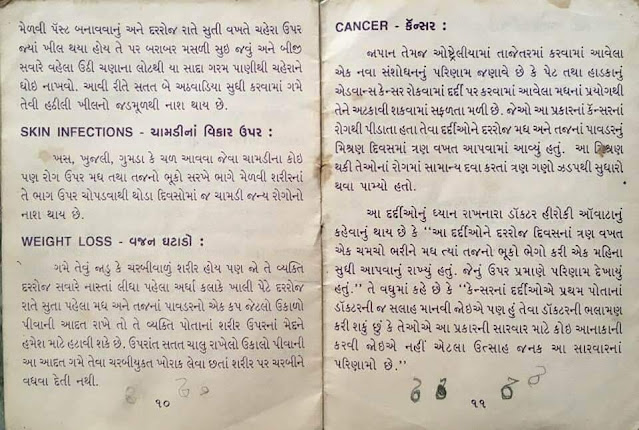 મેળવી પૅસ્ટ બનાવવાનું અને દરરોજ રાતે સુતી વખતે ચહેરા ઉપર
જ્યાં ખીલ થયા હોય તે પર બરાબર મસળી સુઇ જવું અને બીજી
સવારે વહેલા ઉઠી ચણાના લોટથી યા સાદા ગરમ પાણીથી ચહેરાને
ધોઇ નાખવો. આવી રીતે સતત બે અઠવાડિયા સુધી કરવામાં ગમે
તેવી હઠીલી ખીલનો જડમૂળથી નાશ થાય છે.
SKIN INFECTIONS - ચામડીનાં વિકાર ઉપર :
ખસ, ખુજલી, ગુમડા કે ચળ આવવા જેવા ચામડીના કોઇ
પણ રોગ ઉપર મધ તથા તજનો ભૂકો સરખે ભાગે મેળવી શરીરનાં
તે ભાગ ઉપર ચોપડવાથી થોડા દિવસોમાં જ ચામડી જન્ય રોગોનો
નાશ થાય છે.
WEIGHT LOSS - વજન ઘટાડો :
ગમે તેવું જાડુ કે ચરબીવાળું શરીર હોય પણ જો તે વ્યક્તિ
દરરોજ સવારે નાસ્તાં લીધા પહેલા અર્ધા કલાકે ખાલી પેટે દરરોજ
રાતે સુતા પહેલા મધ અને તજનાં પાવડરનો એક કપ જેટલો ઉકાળો
પીવાની આદત રાખે તો તે વ્યક્તિ પોતાનાં શરીર ઉપરનાં મેદને
હંમેશ માટે હટાવી શકે છે. ઉપરાંત સતત ચાલુ રાખેલો ઉકાલો પીવાની
આ આદત ગમે તેવા ચરબીયુકત ખોરાક લેવા છતાં શરીર પર ચરબીને
વધવા દેતી નથી.
૧૦
CANCER - કૅન્સર :
જાપાન તેમજ ઓષ્ટ્રેલીયામાં તાજેતરમાં કરવામાં આવેલા
એક નવા સંશોધનનું પરિણામ જણાવે છે કે પેટ તથા હાડકાનું
એડવાન્સ કેન્સર રોકવામાં દર્દી પર કરવામાં આવેલા મધનાં પ્રયોગથી
તેને અટકાવી શકવામાં સફળતા મળી છે. જેઓ આ પ્રકારનાં કૅન્સરનાં
રોગથી પીડાતા હતા તેવા દર્દીઓને દરરોજ મધ અને તજનાં પાવડરનું
મિશ્રણ દિવસમાં ત્રણ વખત આપવામાં આવ્યું હતું. આ મિશ્રણ
થકી તેઓનાં રોગમાં સામાન્ય દવા કરતાં ત્રણ ગણો ઝડપથી સુધારો
થવા પામ્યો હતો.
આ દર્દીઓનું ધ્યાન રાખનારા ડૉકટર હીરોકી ઑવાટાનું
કહેવાનું થાય છે કે "આ દર્દીઓને દરરોજ દિવસનાં ત્રણ વખત
એક ચમચો ભરીને મધ ત્યાં તજનો ભૂકો ભેગો કરી એક મહિના
સુધી આપવાનું રાખ્યું હતું. જેનું ઉપર પ્રમાણે પરિણામ દેખાયું
હતું." તે વધુમાં કહે છે કે "કેન્સરનાં દર્દીઓએ પ્રથમ પોતાનાં
ડૉકટરની જ સલાહ માનવી જોઇએ પણ હું તેવા ડૉકટરની ભલામણ
કરી શકું છું કે તેઓએ આ પ્રકારની સારવાર માટે કોઇ આનાકાની
કરવી જોઇએ નહીં એટલા ઉત્સાહ જનક આ સારવારનાં
પરિણામો છે."
૧૧